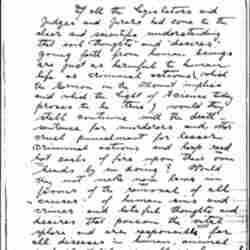 If all the Legislators and
Judges and Jurors had come to the
clear and scientific understanding
that evil thoughts and desires
going forth from human beings
are just as harmful to human
life as criminal actions, which
the Sermon on the Mount implies
and which the light of Science today
proves to be true; would they
still continue with the death
sentence for murderers and other
cruel punishment for lesser
criminal actions and heap
hot coals of fire upon their own
heads by so doing? Would
they not make new laws in
favour of the removal of all
causes of human sins and
crimes and hateful thoughts and
desires that poison the
sphere and are responsible for
all diseases in human, animal